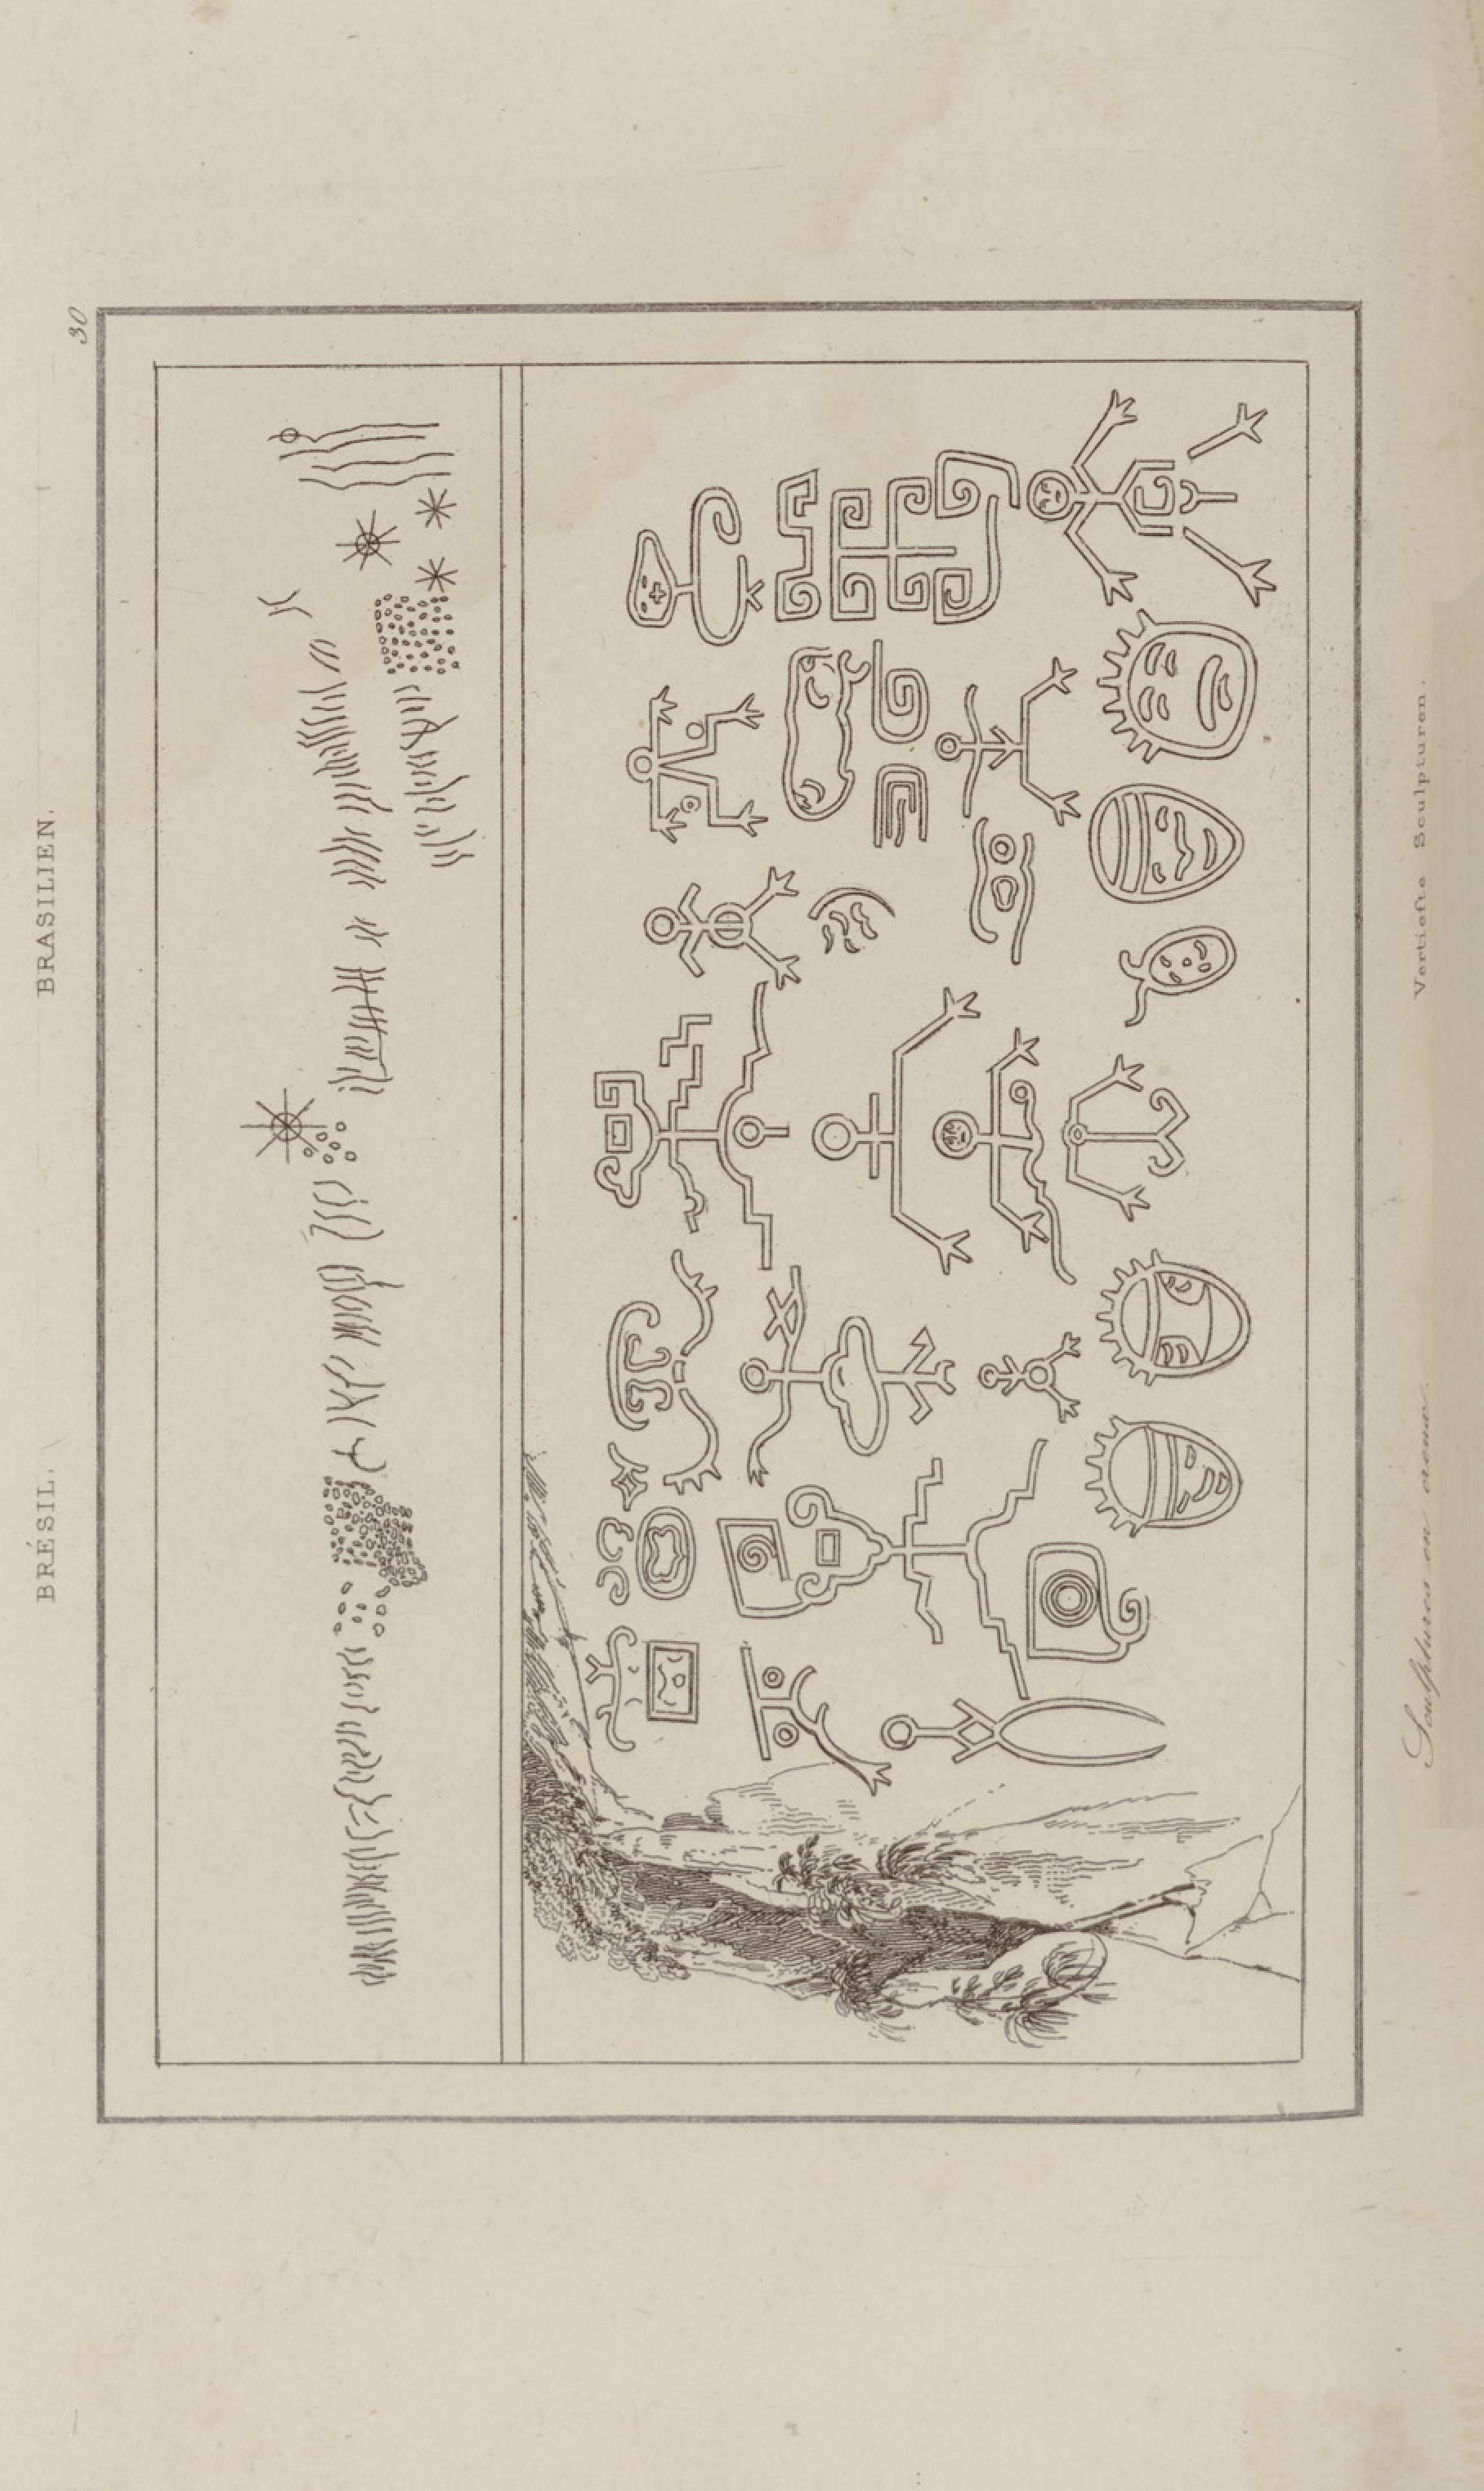 BRÉSIL. BRASILIEN. 30
Sculptures en creux. Vertiefte Sculpturen.